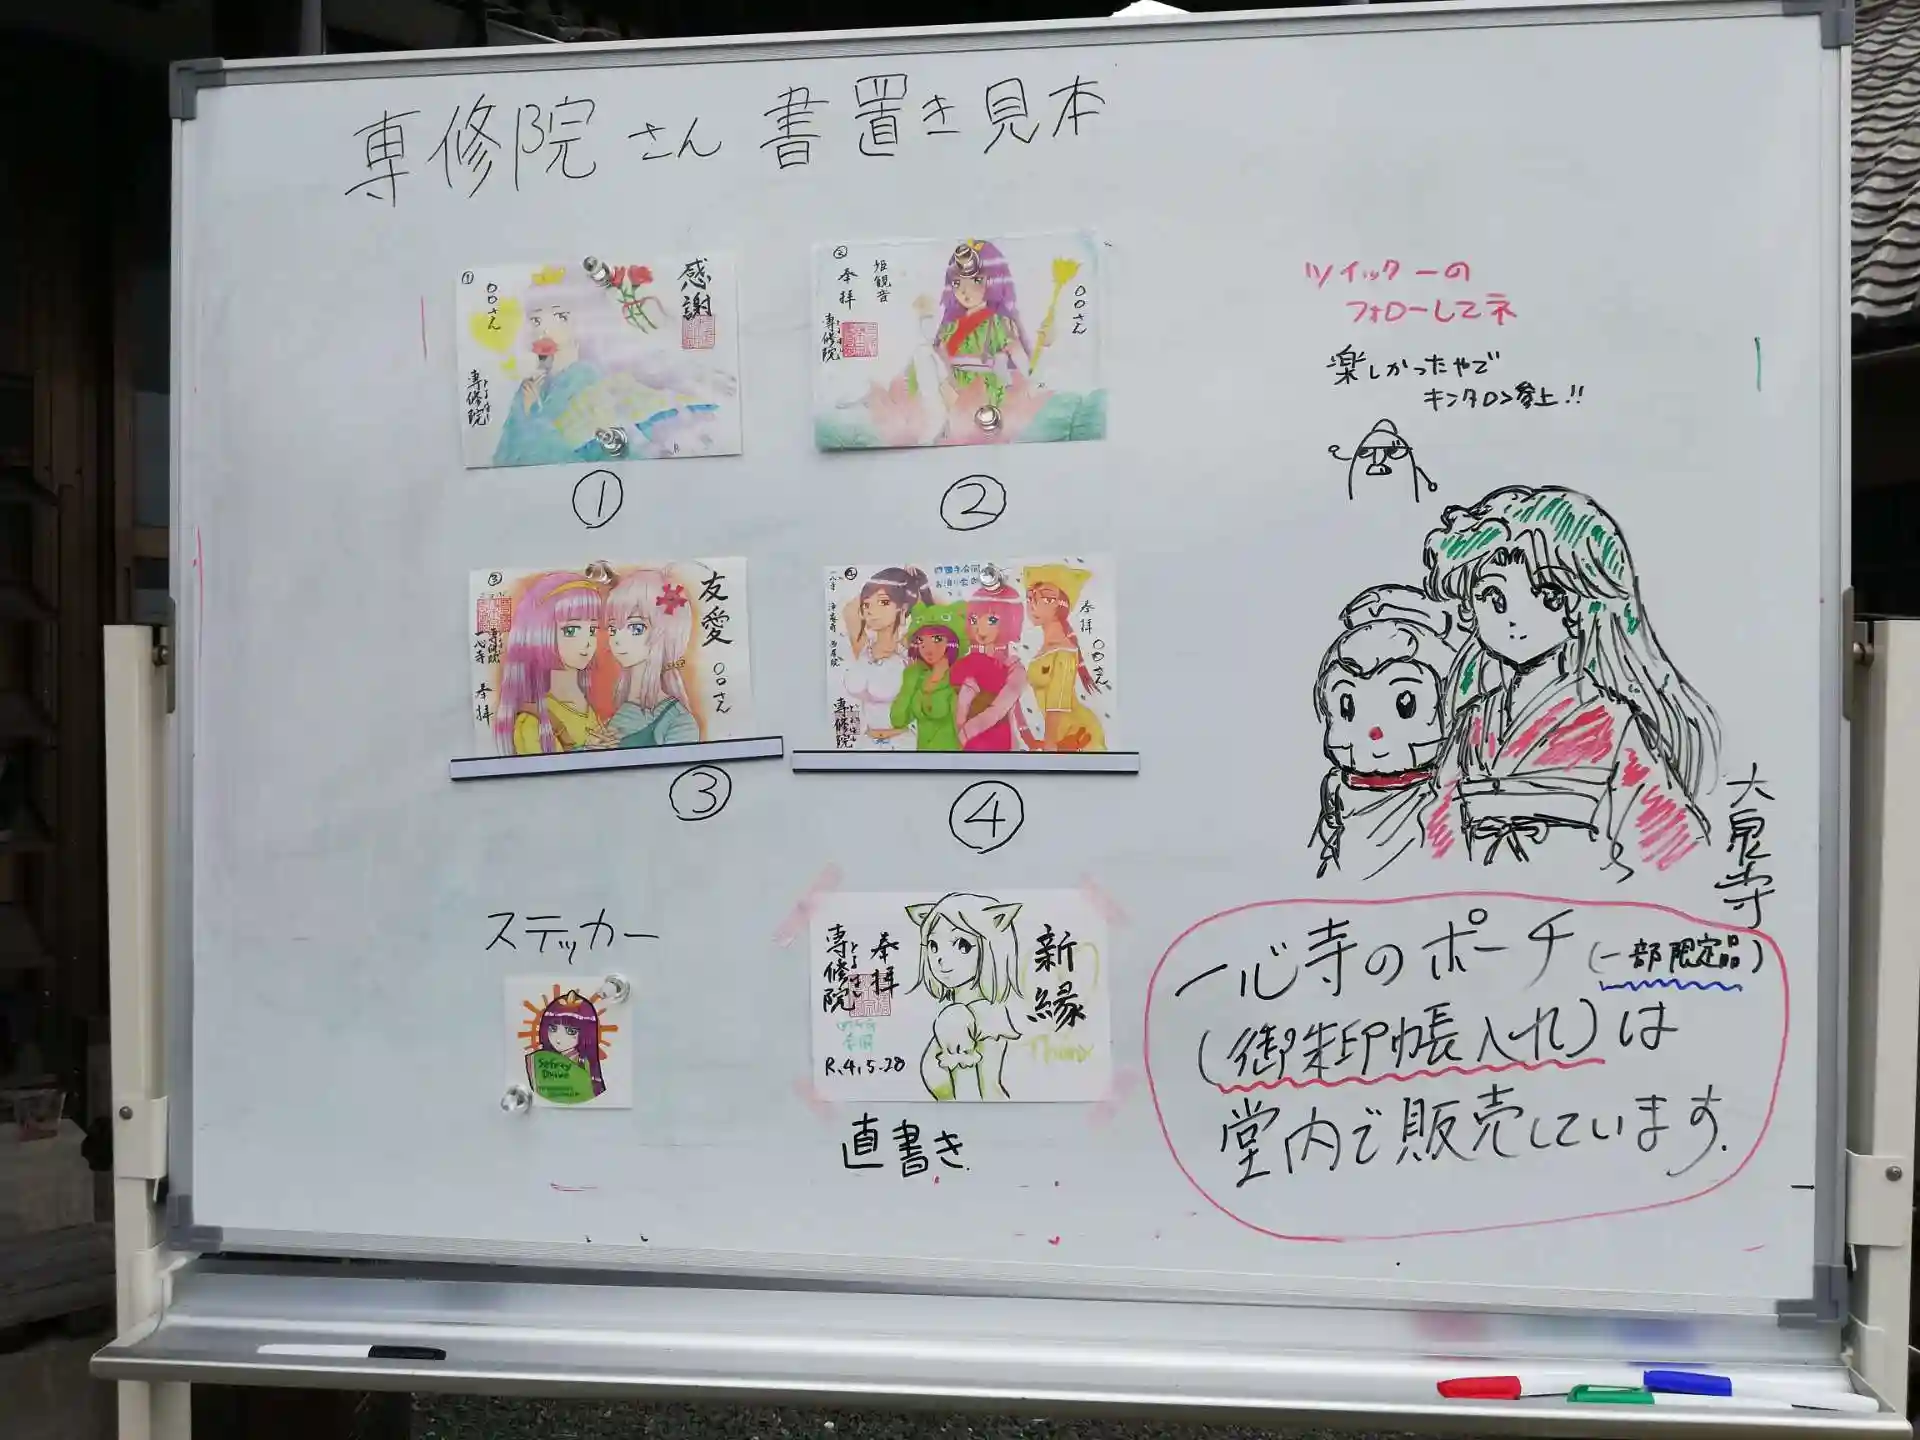 専修院さん 書置き見本
①
〇〇さん
感謝
専修院
①
②
奉拝
姫観音
専修院
〇〇さん
②
③
専修院
一心寺
奉拝
友愛
〇〇さん
③
④
奉拝
〇〇さん
専修院
④
ステッカー
Safety
Drive
専修院
奉拝
R.4.5.28
新縁
直書き
ツイッターの
フォローしてネ
楽しかったやで
キンタロン参上!!
大泉寺
一心寺のポーチ(一部限定品)
(御朱印帳入れ)は
堂内で販売しています.